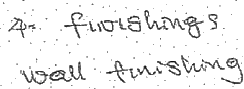 4. finishings
wall finishing